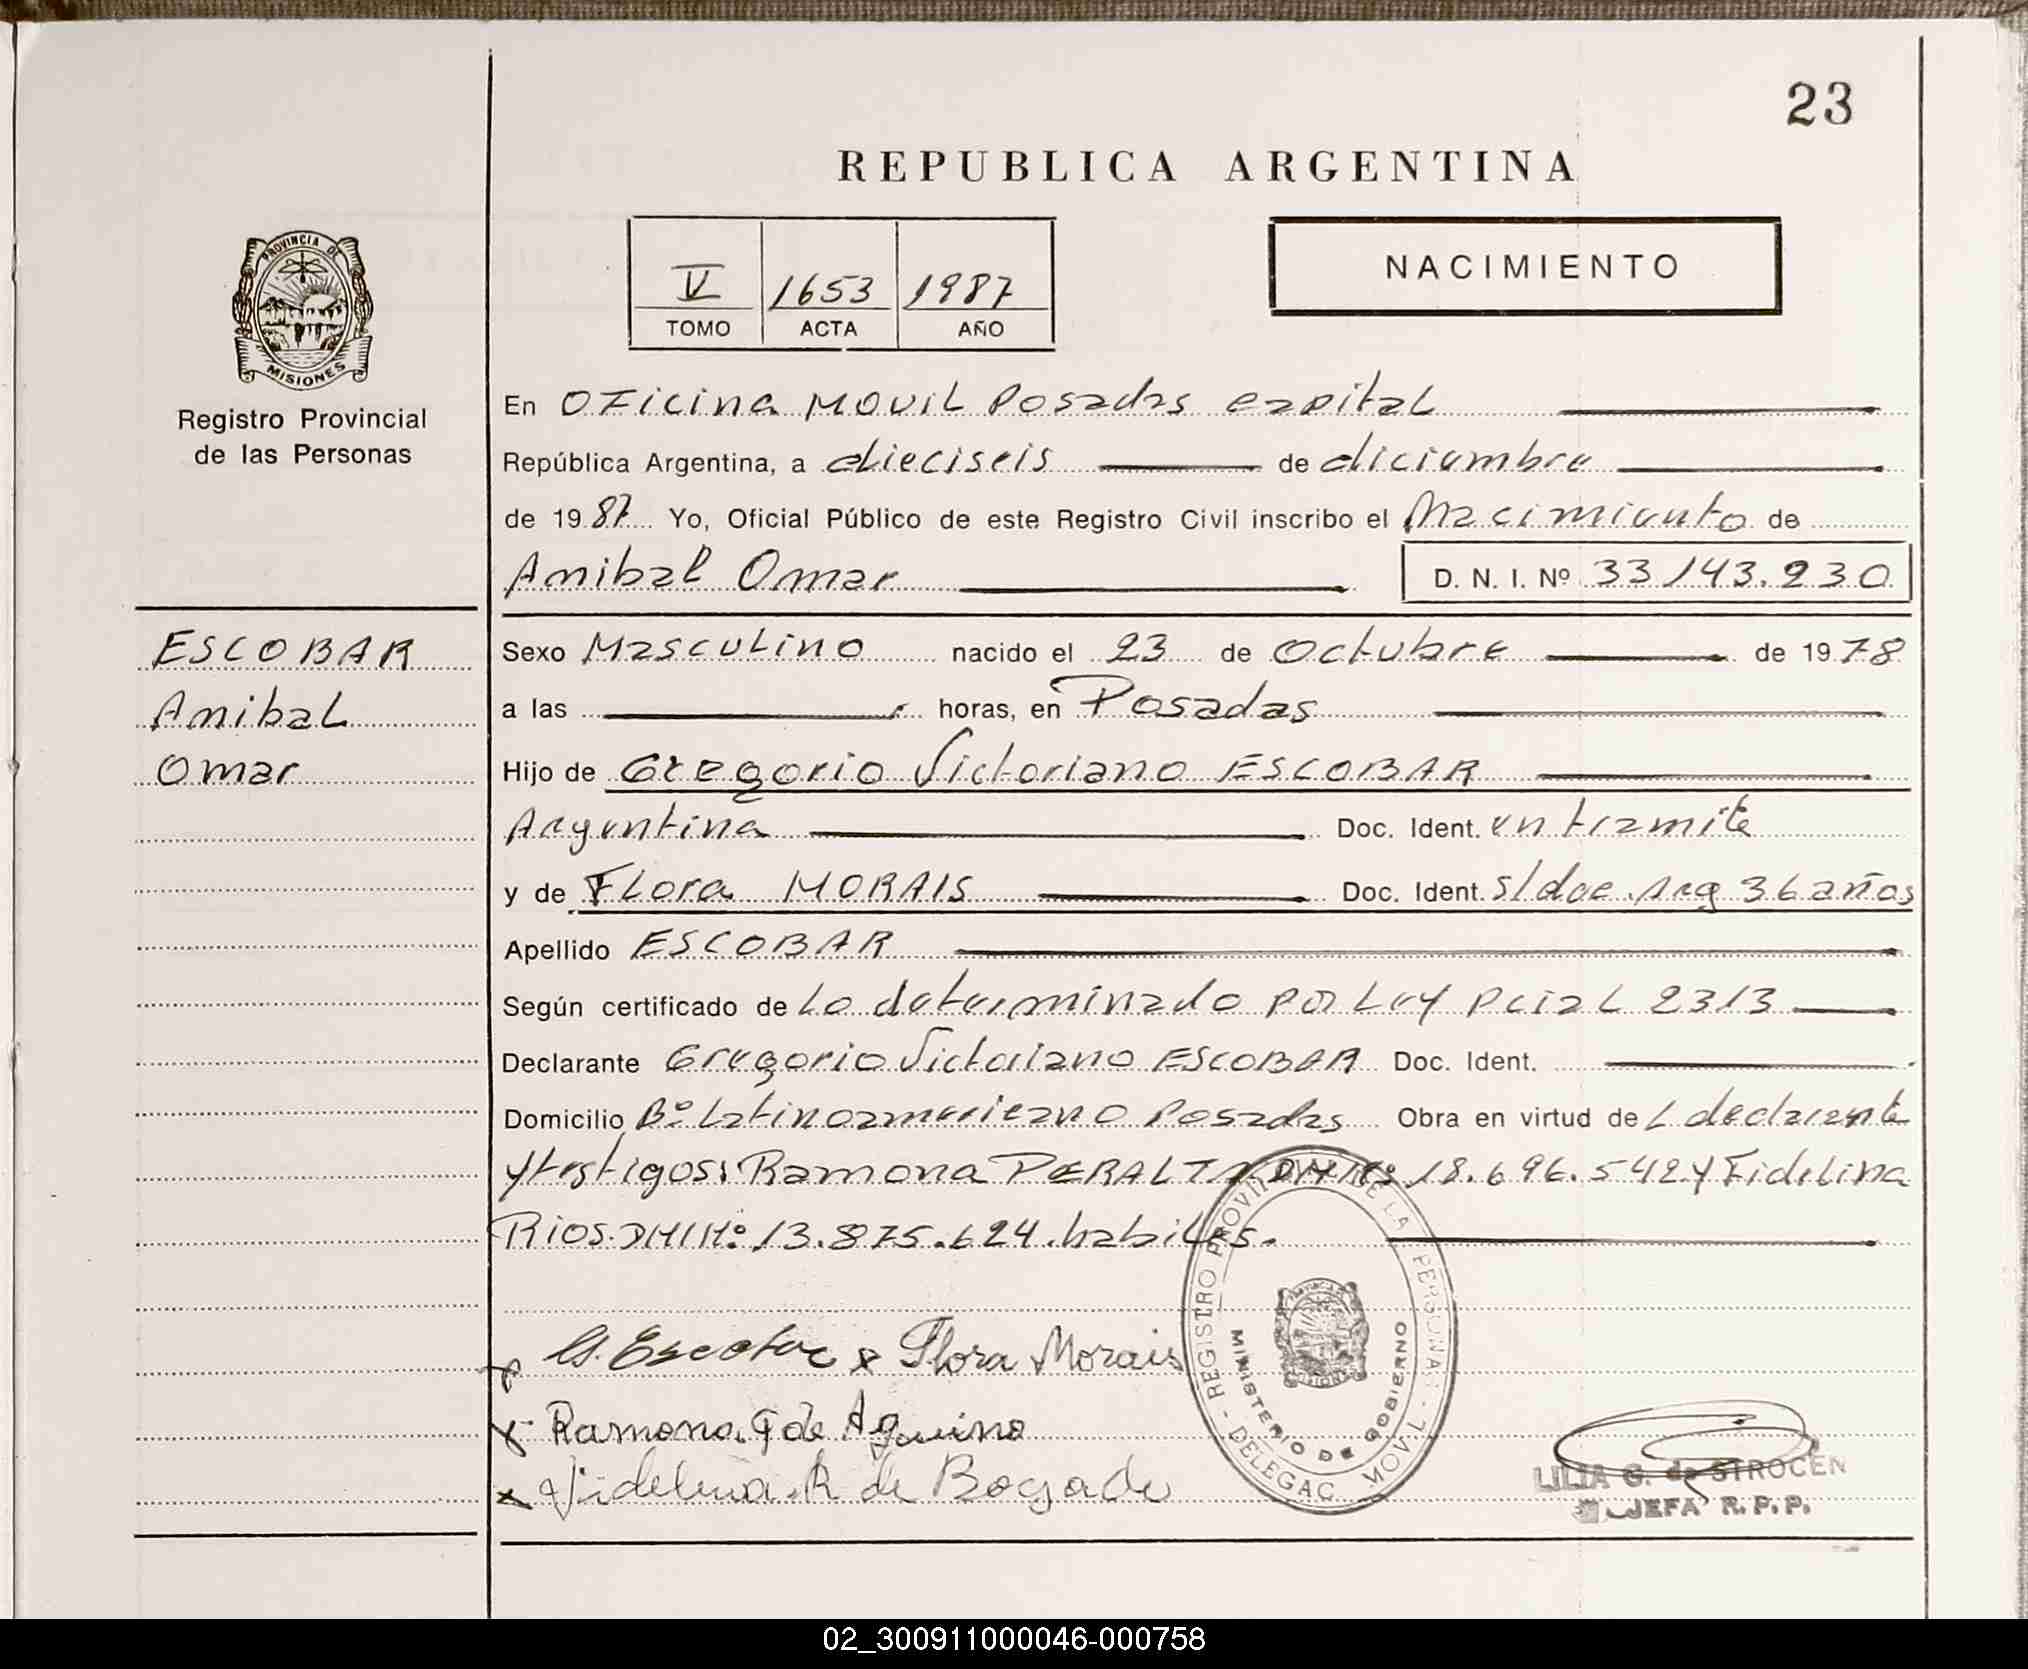 23
REPUBLICA ARGENTINA
V 1653 1987
TOMO ACTA AÑO
NACIMIENTO
PROVINCIA DE
MISIONES
Registro Provincial
de las Personas
ESCOBAR
Anibal
Omar
En Oficina Movil Posadas capital
República Argentina, a dieciseis de diciembre
de 1987 Yo, Oficial Público de este Registro Civil inscribo el Nacimiento de
Anibal Omar D. N. I. Nº 33143.230
Sexo Masculino nacido el 23 de Octubre de 1978
a las horas, en Posadas
Hijo de Gregorio Victoriano ESCOBAR
Argentina Doc. Ident. en tramite
y de Flora MORAIS Doc. Ident. s/doc. Arg 36 años
Apellido ESCOBAR
Según certificado de Lo determinado por Ley Pcial 2313
Declarante Gregorio Victoriano ESCOBAR Doc. Ident.
Domicilio Bº Latinoamericano Posadas Obra en virtud de L declarante
y testigos: Ramona PERALTA DNINº 18.696.542 y Fidelina
Rios. DNINº 13.875.624. habiles.
G. Escobar x Flora Morais
Ramona. de Aquino
x Fidelina. R de Bogado
REGISTRO PROVINCIAL DE LA PERSONAS
MINISTERIO DE GOBIERNO
- DELEGAC. MOVIL -
LILIA G. de STROCEN
JEFA R.P.P.
02_300911000046-000758